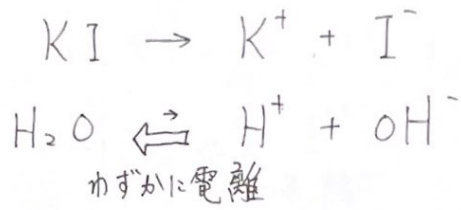 KI → K⁺ + I⁻
H₂O ⇄ H⁺ + OH⁻
わずかに電離